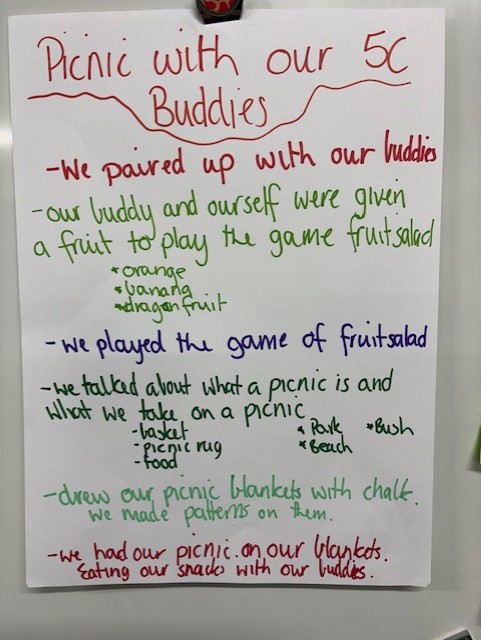 Picnic with our 5C
Buddies
-We paired up with our buddies
-our buddy and ourself were given
a fruit to play the game fruitsalad
*orange
*banana
*dragonfruit
-we played the game of fruitsalad
-we talked about what a picnic is and
what we take on a picnic
-basket
-picnic rug
-food
*Park *Bush
*Beach
-drew our picnic blankets with chalk.
we made patterns on them.
-we had our picnic on our blankets.
Eating our snacks with our buddies.